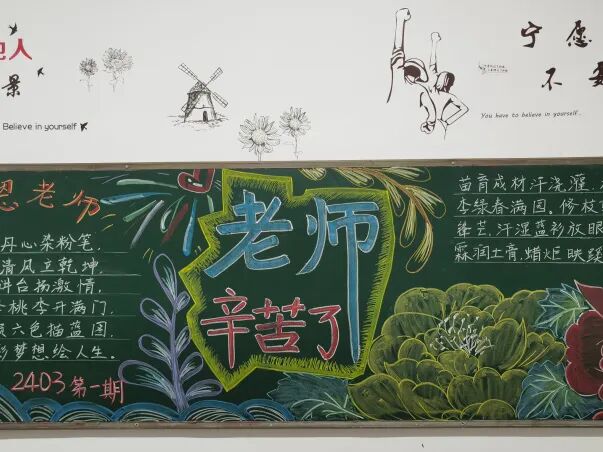 人
景
Believe in yourself
宁愿
不要
You have to believe in yourself.
恩老师
丹心染粉笔,
清风立乾坤,
斗台扬激情,
桃李开满门,
六色描蓝图,
彩梦想绘人生。
2403第一期
老师
辛苦了
苗育成材汗浇灌,
李绿春满园。修枝
锋芒,汗湿蓝衫放眼
霖润土膏,蜡炬映